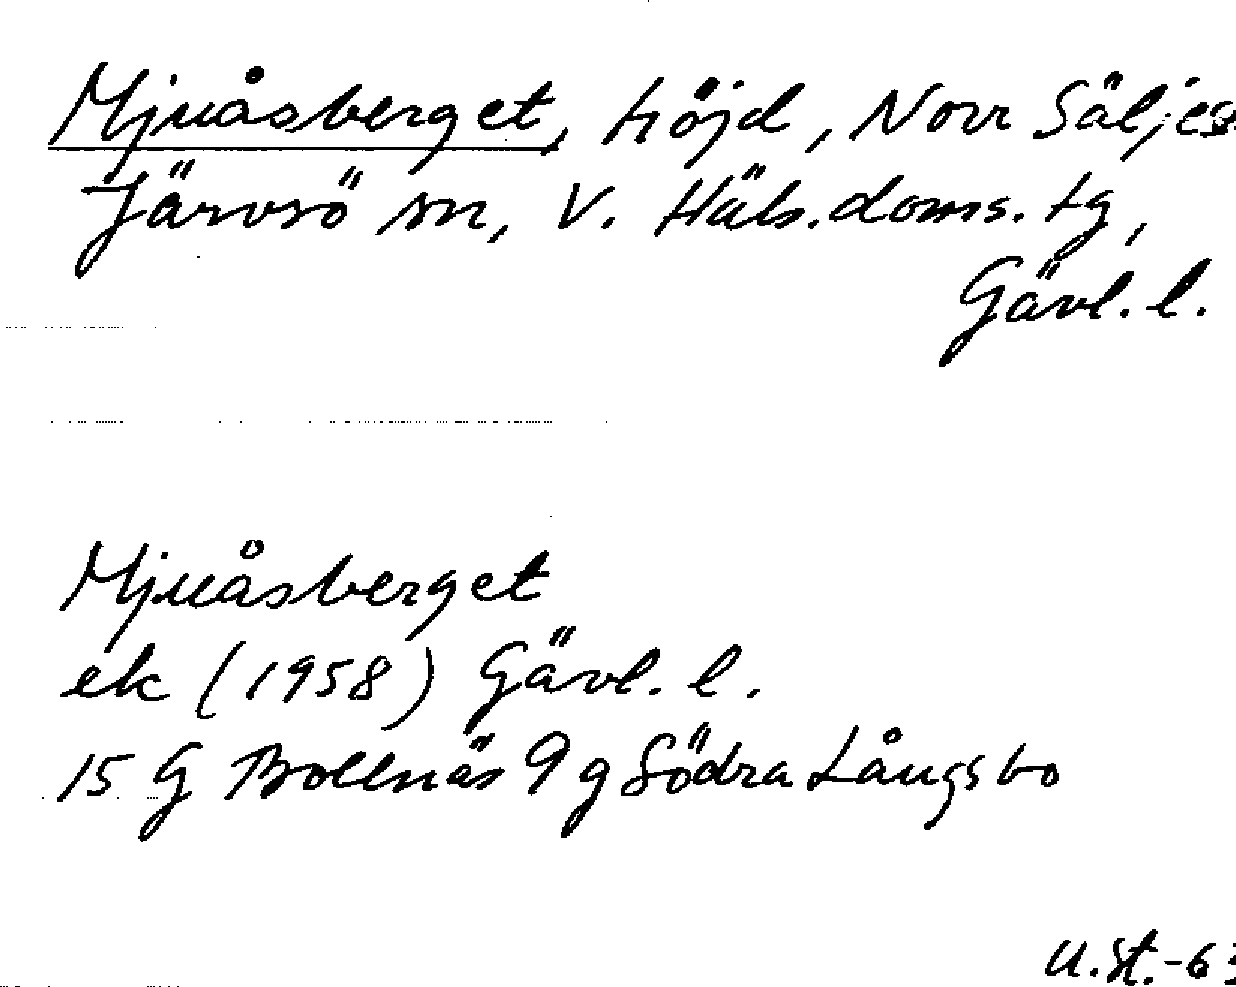 Mjuåsberget, höjd, Norr Säljes
Järvsö sn, V. Häls. doms. tg,
Gävl. l.
Mjuåsberget
ek (1958) Gävl. l.
15 G Bollnäs 9 g Södra Långsbo
U.St.-63